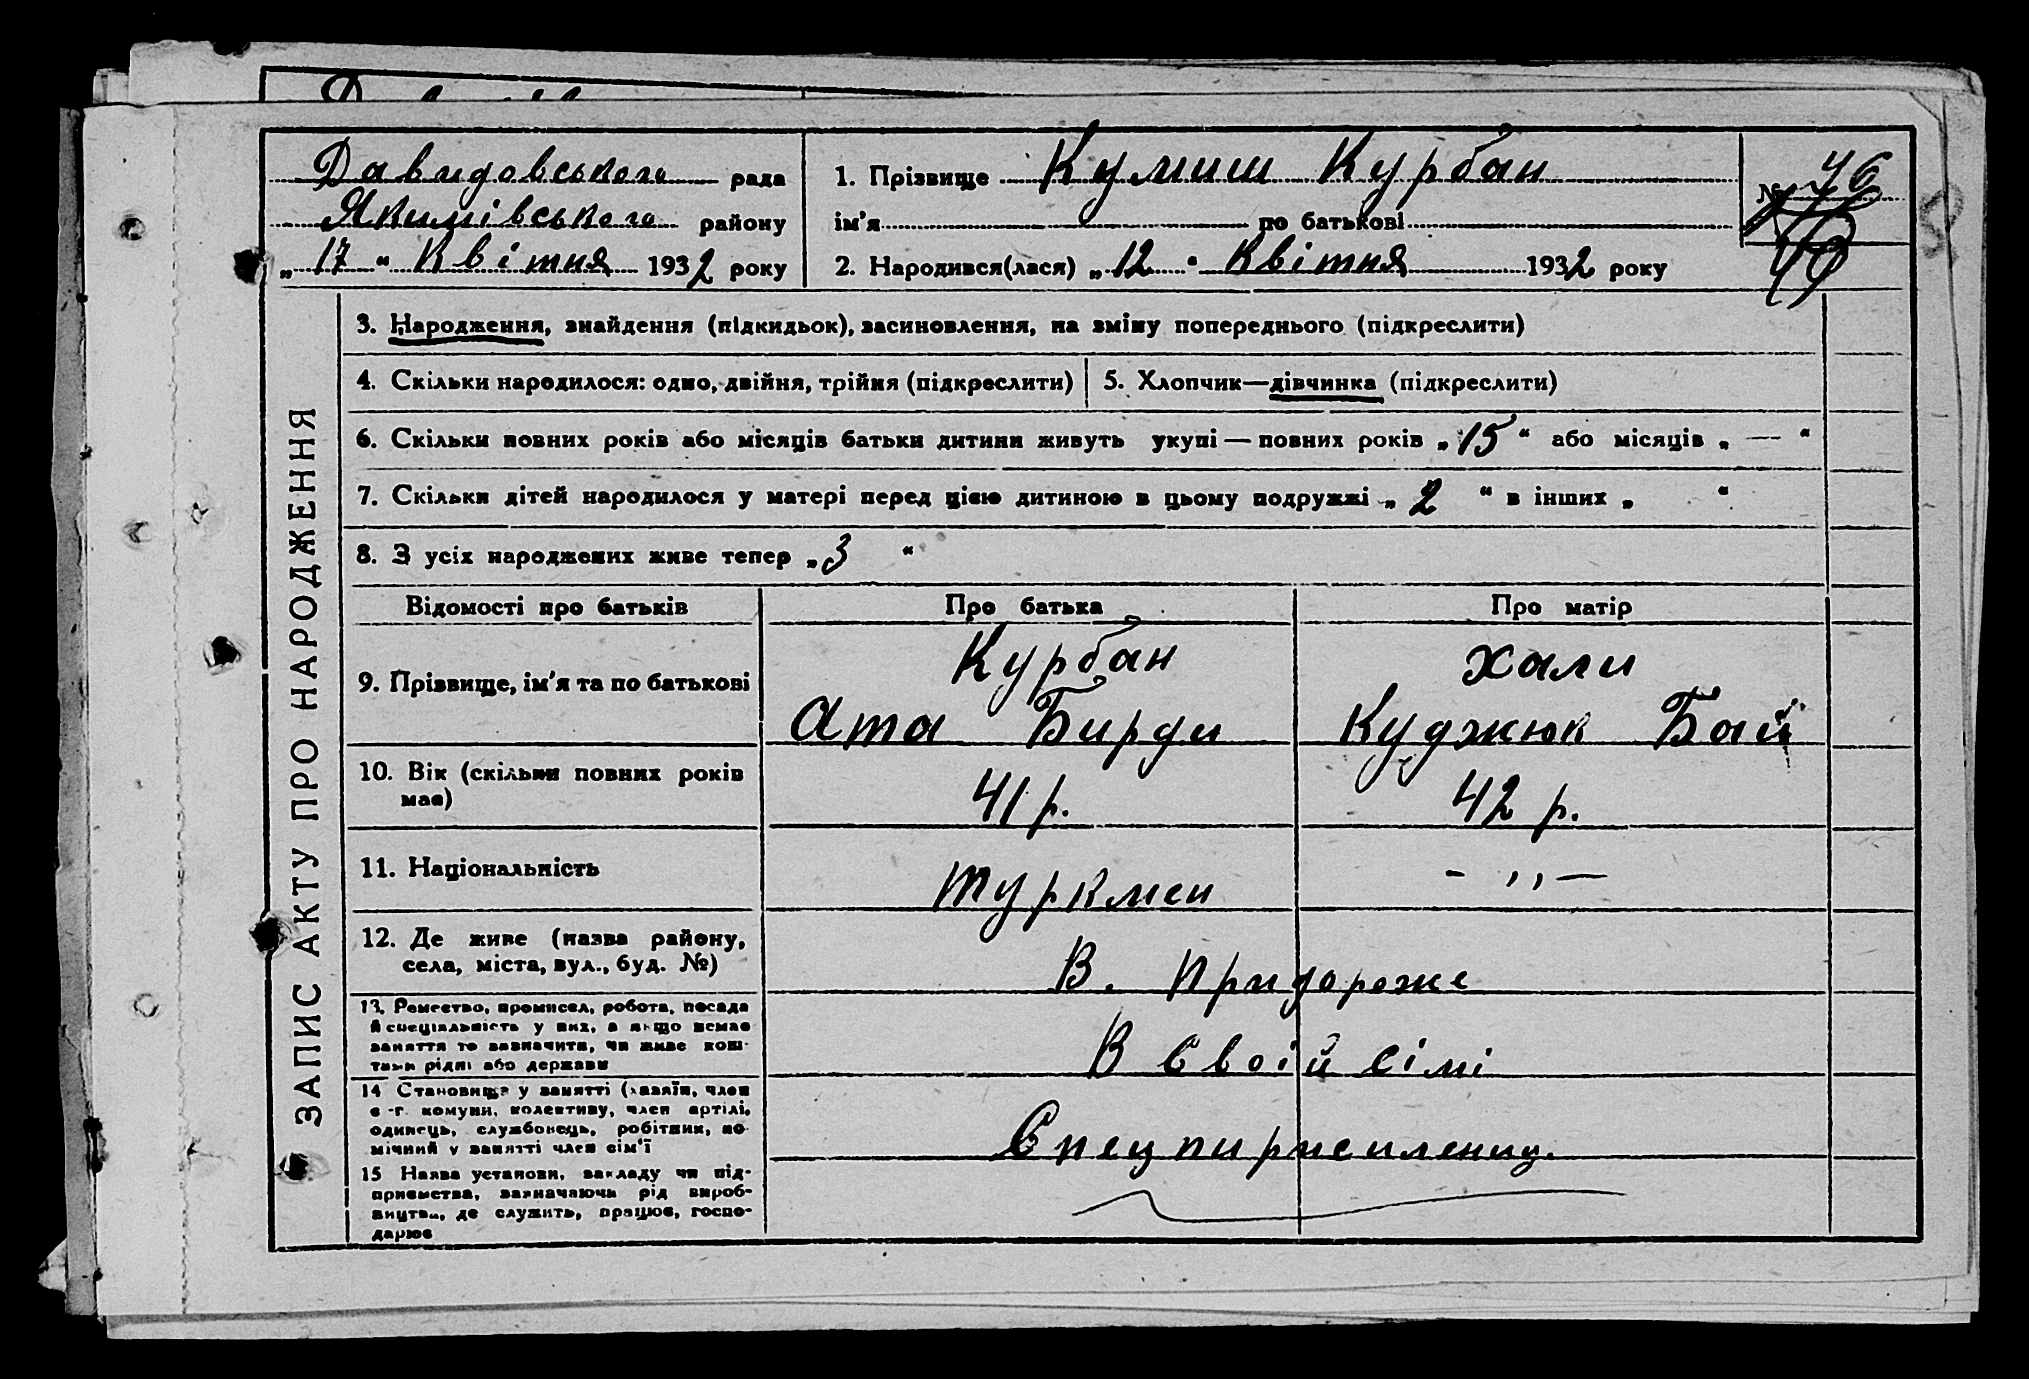 Давидовського рада
Якимівського району
„ 17 “ Квітня 1932 року
1. Прізвище Кумиш Курбан
ім’я по батькові
2. Народився(лася) „ 12 “ Квітня 1932 року
№ 46
ЗАПИС АКТУ ПРО НАРОДЖЕННЯ
3. Народження, знайдення (підкидьок), засиновлення, на зміну попереднього (підкреслити)
4. Скільки народилося: одно, двійня, трійня (підкреслити)
5. Хлопчик—дівчинка (підкреслити)
6. Скільки повних років або місяців батьки дитини живуть укупі — повних років „ 15 “ або місяців „ — “
7. Скільки дітей народилося у матері перед цією дитиною в цьому подружжі „ 2 “ в інших „ “
8. З усіх народжених живе тепер „ 3 “
Відомості про батьків
Про батька
Про матір
9. Прізвище, ім’я та по батькові
Курбан
Ата Бирди
Хали
Куджюк Бай
10. Вік (скільки повних років
має)
41 р.
42 р.
11. Національність
туркмен
- ,, —
12. Де живе (назва району,
села, міста, вул., буд. №)
В. Придороже
13. Ремество, промисел, робота, посада
й спеціальність у них, а якщо немає
заняття то зазначити, чи живе кош-
тами рідні або держави
В своій сімі
14 Становище у занятті (хазяїн, член
с.-г. комуни, колективу, член артілі,
одинець, службовець, робітник, по-
мічний у занятті член сім’ї
Спецпирисиленец.
15 Назва установи, закладу чи під-
приємства, зазначаючи рід вироб-
ництва, де служить, працює, госпо-
дарює